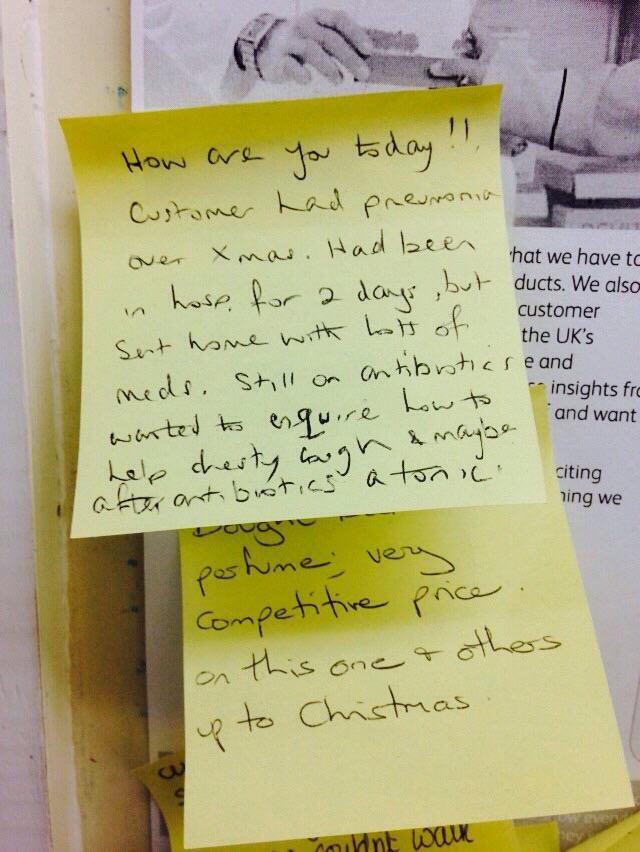 How are you today!!
Customer had pneumonia
over Xmas. Had been
in hosp. for 2 days, but
sent home with lotts of
meds. Still on antibiotics
wanted to enquire how to
help chesty cough & maybe
after antibiotics a tonic.
perfume; very
competitive price.
on this one & others
up to Christmas.
couldnt walk
what we have to
ducts. We also
customer
the UK's
e and
insights fro
and want
citing
ning we